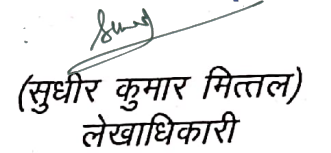 (सुधीर कुमार मित्तल)
लेखाधिकारी